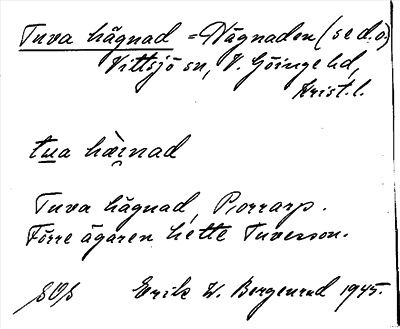 Tuva hägnad = Hägnaden (se d.o)
Vittsjö sn, V. Göinge hd,
Krist. l.
tua hæi̯nad
Tuva hägnad, Porrarp.
Förre ägaren hette Tuvesson.
Erik W. Bergenrud 1945.